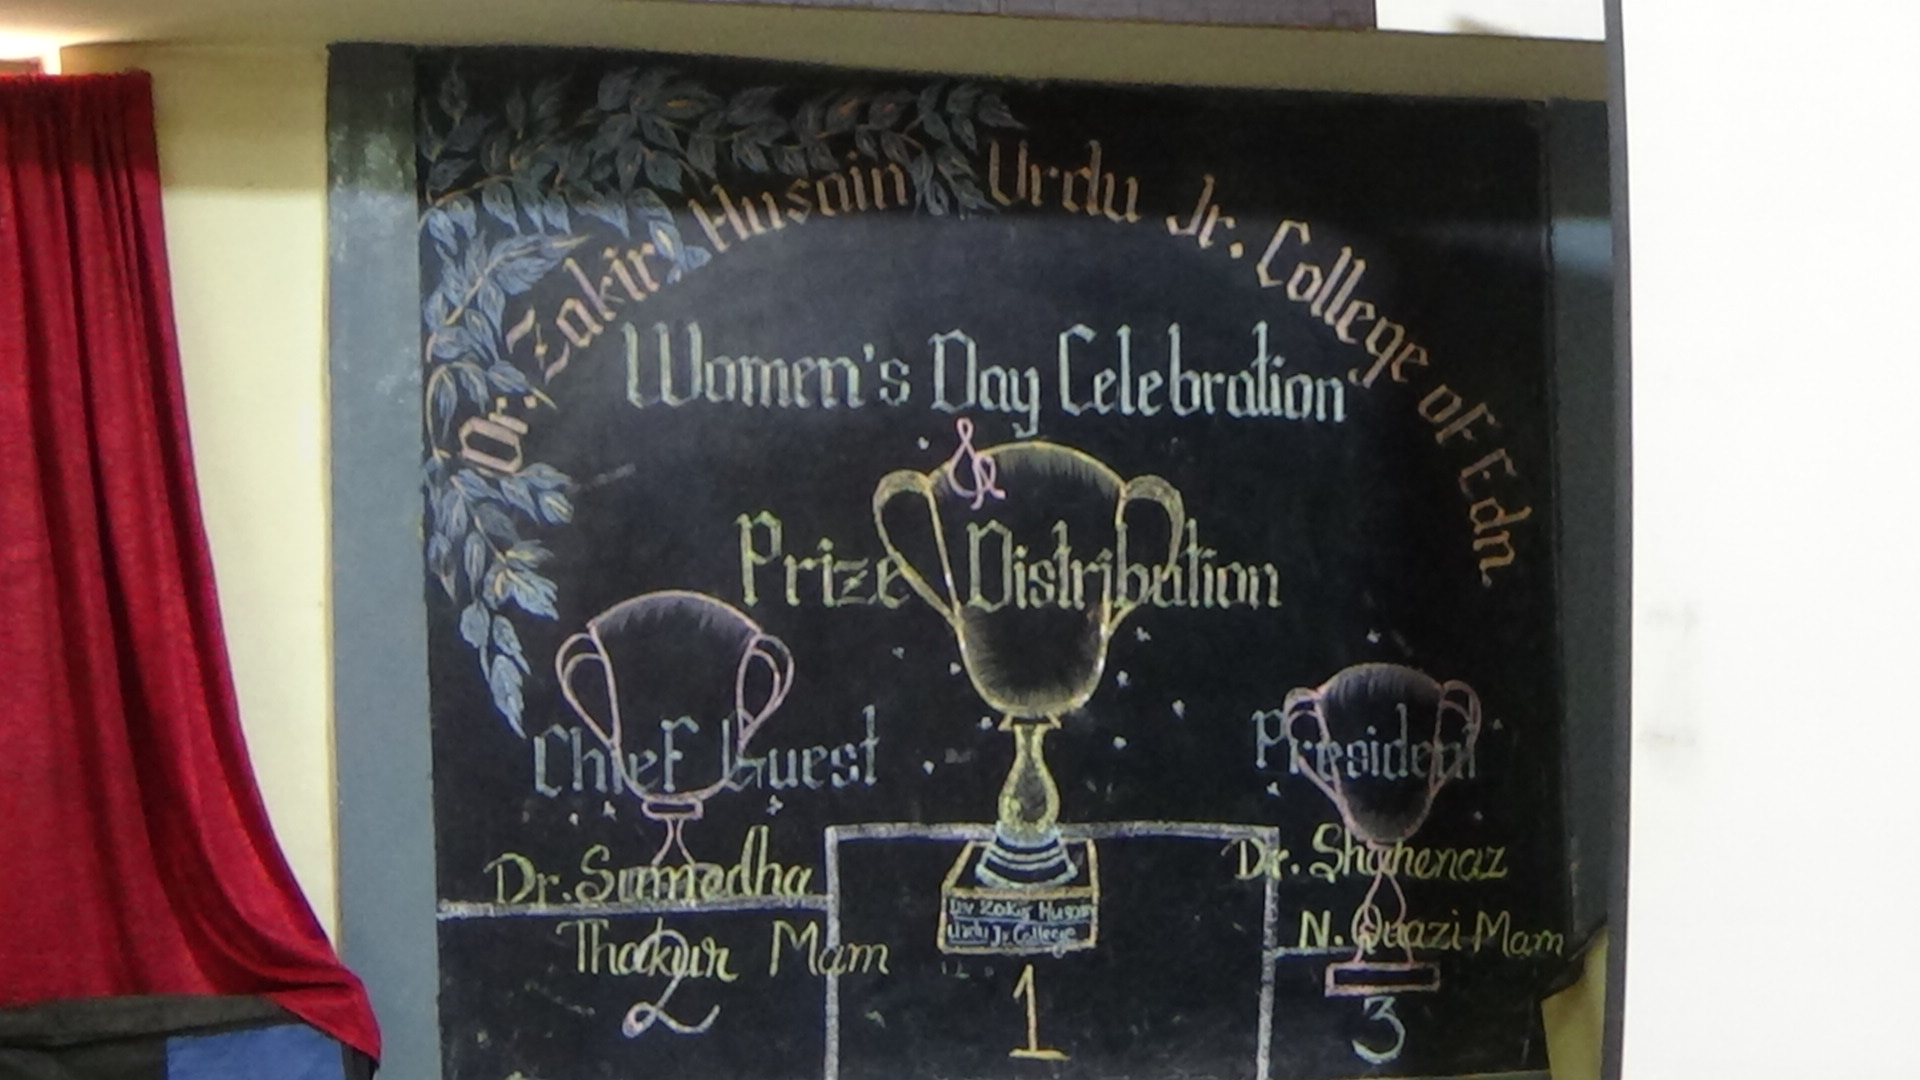 Dr. Zakir Husain Urdu Jr. College of Edn
Women's Day Celebration
&
Prize Distribution
Chief Guest
President
Dr. Sumedha
Thakur Mam
Dr. Shahenaz
N. Quazi Mam
Dr Zakir Husain
Urdu Jr College
2
1
3